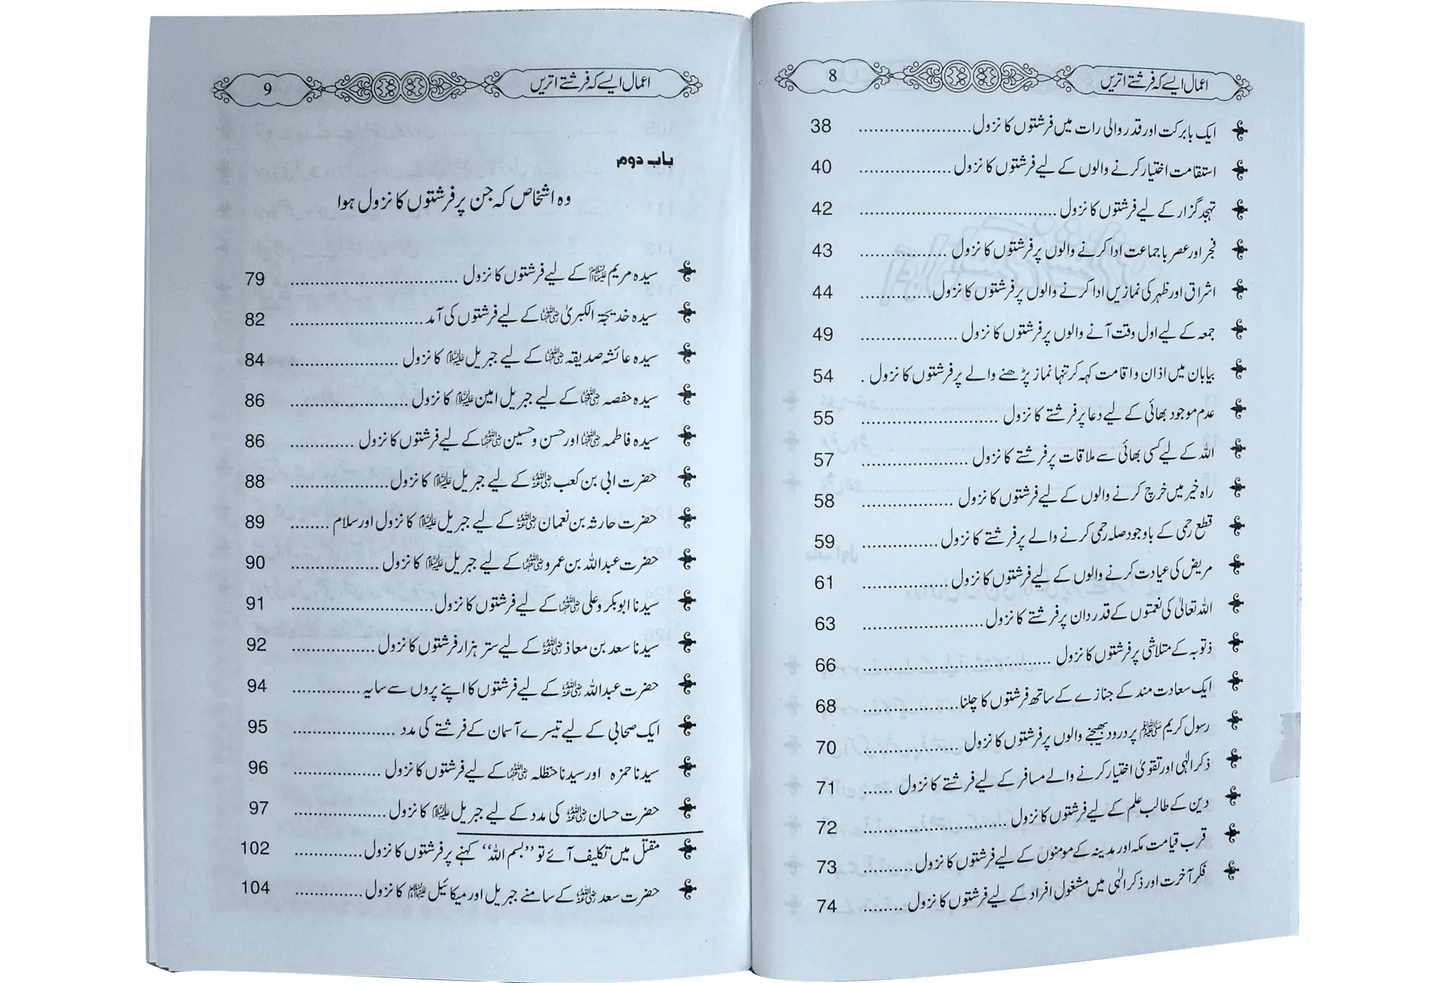 اعمال ایسے کہ فرشتے اتریں 8
ایک بابرکت اور قدر والی رات میں فرشتوں کا نزول ..................... 38
استقامت اختیار کرنے والوں کے لیے فرشتوں کا نزول ................. 40
تہجد گزار کے لیے فرشتوں کا نزول ................................... 42
فجر اور عصر باجماعت ادا کرنے والوں پر فرشتوں کا نزول ................ 43
اشراق اور ظہر کی نمازیں ادا کرنے والوں پر فرشتوں کا نزول ............. 44
جمعہ کے لیے اول وقت آنے والوں پر فرشتوں کا نزول .................. 49
بیابان میں اذان و اقامت کہہ کر تنہا نماز پڑھنے والے پر فرشتوں کا نزول . 54
عدم موجود بھائی کے لیے دعا پر فرشتے کا نزول ........................ 55
اللہ کے لیے کسی بھائی سے ملاقات پر فرشتے کا نزول ................... 57
راہ خیر میں خرچ کرنے والوں کے لیے فرشتوں کا نزول ................. 58
قطع رحمی کے باوجود صلہ رحمی کرنے والے پر فرشتے کا نزول .............. 59
مریض کی عیادت کرنے والوں کے لیے فرشتوں کا نزول ................ 61
اللہ تعالیٰ کی نعمتوں کے قدر دان پر فرشتے کا نزول ..................... 63
ذتوبہ کے متلاشی پر فرشتوں کا نزول ................................. 66
ایک سعادت مند کے جنازے کے ساتھ فرشتوں کا چلنا ................. 68
رسول کریم ﷺ پر درود بھیجنے والوں پر فرشتوں کا نزول ................. 70
ذکر الٰہی اور تقویٰ اختیار کرنے والے مسافر کے لیے فرشتے کا نزول ...... 71
دین کے طالب علم کے لیے فرشتوں کا نزول .......................... 72
قرب قیامت مکہ اور مدینہ کے مومنوں کے لیے فرشتوں کا نزول .......... 73
فکر آخرت اور ذکر الٰہی میں مشغول افراد کے لیے فرشتوں کا نزول ........ 74
اعمال ایسے کہ فرشتے اتریں 9
باب دوم
وہ اشخاص کہ جن پر فرشتوں کا نزول ہوا
سیدہ مریم علیہا السلام کے لیے فرشتوں کا نزول .............................. 79
سیدہ خدیجۃ الکبریٰ رضی اللہ عنہا کے لیے فرشتوں کی آمد ........................ 82
سیدہ عائشہ صدیقہ رضی اللہ عنہا کے لیے جبریل علیہ السلام کا نزول ................... 84
سیدہ حفصہ رضی اللہ عنہا کے لیے جبریل امین علیہ السلام کا نزول ..................... 86
سیدہ فاطمہ رضی اللہ عنہا اور حسن و حسین رضی اللہ عنہما کے لیے فرشتوں کا نزول ............ 86
حضرت ابی بن کعب رضی اللہ عنہ کے لیے جبریل علیہ السلام کا نزول ................. 88
حضرت حارثہ بن نعمان رضی اللہ عنہ کے لیے جبریل علیہ السلام کا نزول اور سلام ........ 89
حضرت عبداللہ بن عمرو رضی اللہ عنہما کے لیے جبریل علیہ السلام کا نزول ................ 90
سیدنا ابوبکر و علی رضی اللہ عنہما کے لیے فرشتوں کا نزول ......................... 91
سیدنا سعد بن معاذ رضی اللہ عنہ کے لیے ستر ہزار فرشتوں کا نزول ............... 92
حضرت عبداللہ رضی اللہ عنہ کے لیے فرشتوں کا اپنے پروں سے سایہ ............ 94
ایک صحابی کے لیے تیسرے آسمان کے فرشتے کی مدد .................. 95
سیدنا حمزہ اور سیدنا حنظلہ رضی اللہ عنہما کے لیے فرشتوں کا نزول ................ 96
حضرت حسان رضی اللہ عنہ کی مدد کے لیے جبریل علیہ السلام کا نزول ................. 97
مقتل میں تکلیف آئے تو ’’بسم اللہ‘‘ کہنے پر فرشتوں کا نزول ............ 102
حضرت سعد رضی اللہ عنہ کے سامنے جبریل اور میکائیل علیہما السلام کا نزول ............. 104